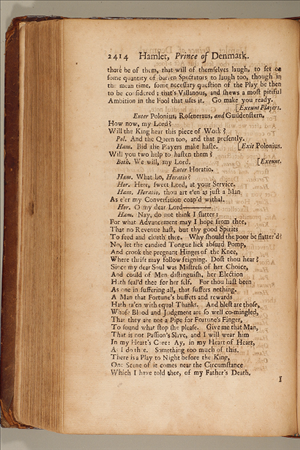 2414 Hamlet, Prince of Denmark.
there be of them, that will of themselves laugh, to set on
some quantity of barren Spectators to laugh too, though in
the mean time, some necessary question of the Play be then
to be considered: that's Villanous, and shews a most pitiful
Ambition in the Fool that uses it. Go make you ready.
[Exeunt Players.
Enter Polonius, Rosencraus, and Guildenstern.
How now, my Lord?
Will the King hear this piece of Work?
Pol. And the Queen too, and that presently.
Ham. Bid the Players make haste. [Exit Polonius.
Will you two help to hasten them?
Both. We will, my Lord. [Exeunt.
Enter Horatio.
Ham. What ho, Horatio?
Hor. Here, sweet Lord, at your Service.
Ham. Horatio, thou art e'en as just a Man
As e'er my Conversation coap'd withal.
Hor. O my dear Lord
Ham. Nay, do not think I flatter:
For what Advancement may I hope from thee,
That no Revenue hast, but thy good Spirits
To feed and cloath thee. Why should the poor be flatter'd?
No, let the candied Tongue lick absurd Pomp,
And crook the pregnant Hinges of the Knee,
Where thrift may follow feigning. Dost thou hear?
Since my dear Soul was Mistress of her Choice,
And could of Men distinguish, her Election
Hath seal'd thee for her self. For thou hast been
As one in suffering all, that suffers nothing.
A Man that Fortune's buffets and rewards
Hath ta'en with equal Thanks. And blest are those,
Whose Blood and Judgment are so well co-mingled,
That they are not a Pipe for Fortune's Finger,
To sound what stop she please. Give me that Man,
That is not Passion's Slave, and I will wear him
In my Heart's Core: Ay, in my Heart of Heart,
As I do thee. Something too much of this.
There is a Play to Night before the King,
One Scene of it comes near the Circumstance
Which I have told thee, of my Father's Death.
I